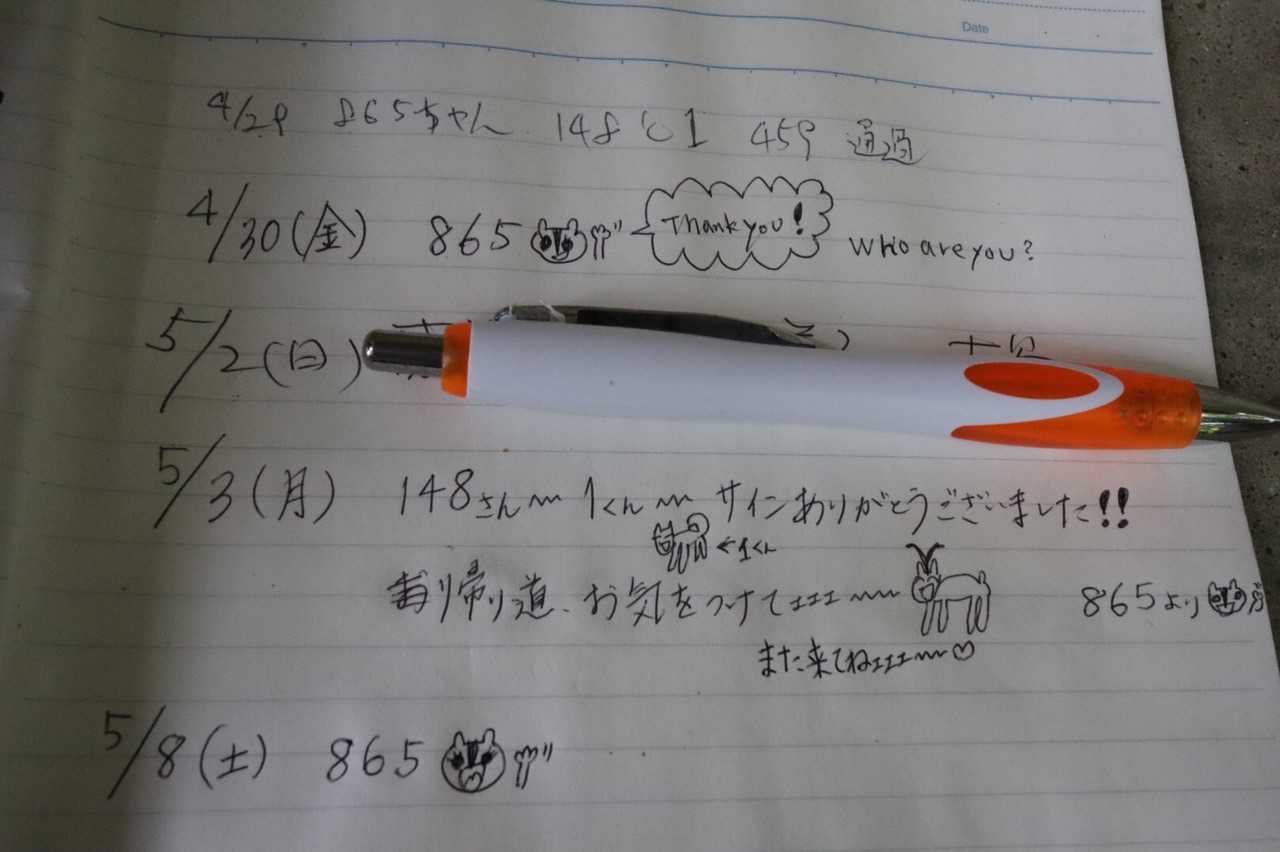 Date
4/29 865ちゃん 148と1 459 通過
4/30(金) 865 Thank you! Who are you?
5/2(日)
5/3(月) 148さん〜 1くん〜 サインありがとうございました!!
←1くん
帰り道、お気をつけてェェェ〜〜 865より
また来てねェェェ〜〜♡
5/8(土) 865